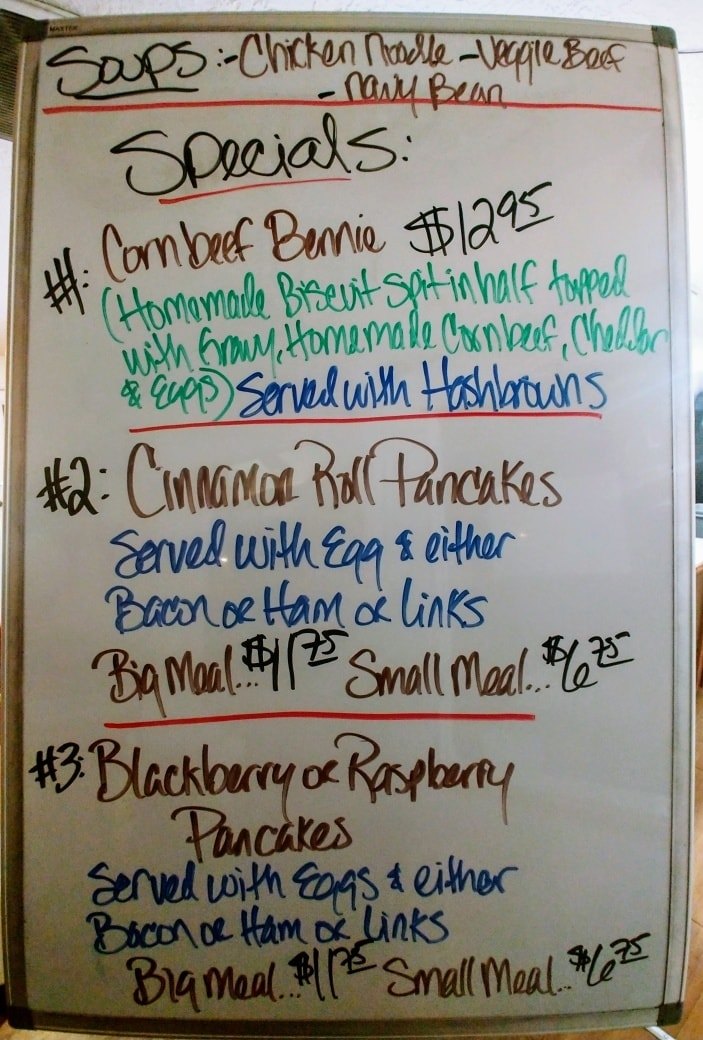 MASTER
Soups:-Chicken Noodle -Veggie Beef
- Navy Bean
Specials:
#1: Cornbeef Bennie $12.95
(Homemade Biscuit Spit in half topped
with Gravy, Homemade Cornbeef, Cheddar
& Eggs) Served with Hashbrowns
#2: Cinnamon Roll Pancakes
Served with Egg & either
Bacon or Ham or Links
Big Meal...$11.75 Small Meal...$6.75
#3: Blackberry or Raspberry
Pancakes
Served with Eggs & either
Bacon or Ham or Links
Big Meal...$11.75 Small Meal..$6.75